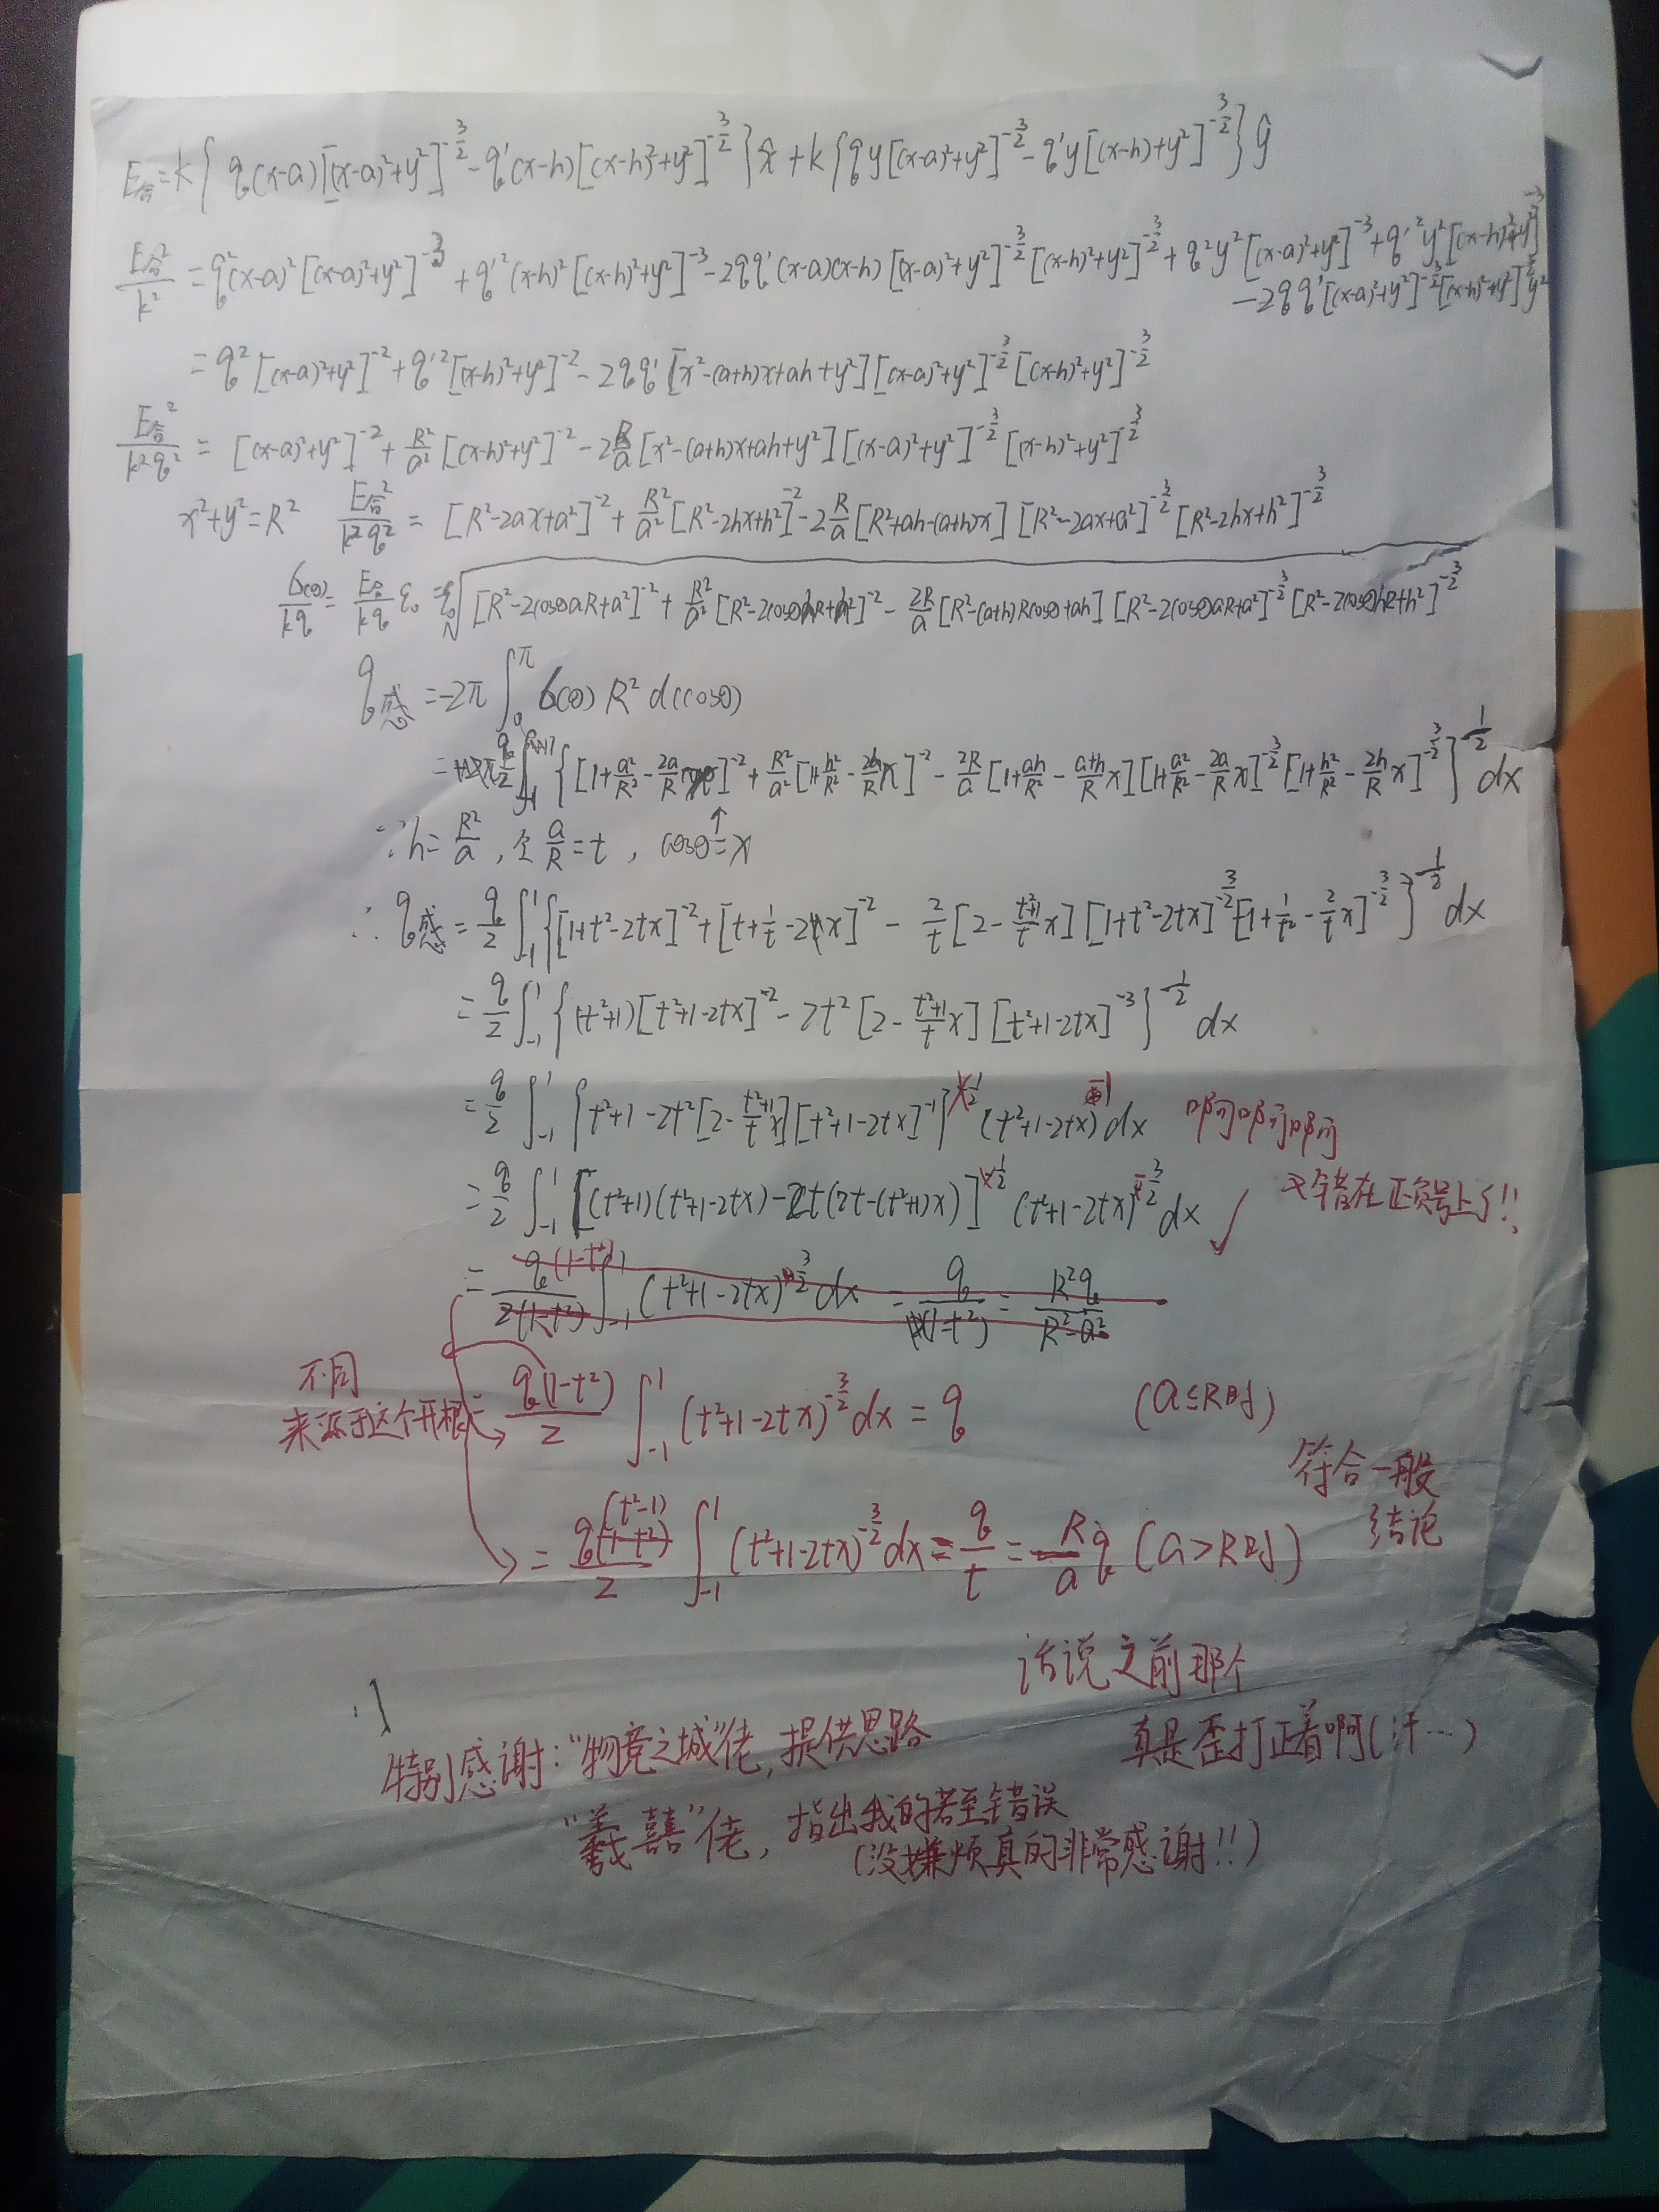 E合=k{q(x-a)[(x-a)²+y²]^{-3/2}-q'(x-h)[(x-h)²+y²]^{-3/2}}x̂+k{qy[(x-a)²+y²]^{-3/2}-q'y[(x-h)+y²]^{-3/2}}ŷ
E合²/k²=q²(x-a)²[(x-a)²+y²]^{-3}+q'²(x-h)²[(x-h)²+y²]^{-3}-2qq'(x-a)(x-h)[(x-a)²+y²]^{-3/2}[(x-h)²+y²]^{-3/2}+q²y²[(x-a)²+y²]^{-3}+q'²y²[(x-h)²+y²]^{-3}
-2qq'[(x-a)²+y²]^{-3/2}[(x-h)²+y²]^{-3/2}y²
=q²[(x-a)²+y²]^{-2}+q'²[(x-h)²+y²]^{-2}-2qq'[x²-(a+h)x+ah+y²][(x-a)²+y²]^{-3/2}[(x-h)²+y²]^{-3/2}
E合²/k²q²=[(x-a)²+y²]^{-2}+R²/a²[(x-h)²+y²]^{-2}-2R/a[x²-(a+h)x+ah+y²][(x-a)²+y²]^{-3/2}[(x-h)²+y²]^{-3/2}
x²+y²=R² E合²/k²q²=[R²-2ax+a²]^{-2}+R²/a²[R²-2hx+h²]^{-2}-2R/a[R²+ah-(a+h)x][R²-2ax+a²]^{-3/2}[R²-2hx+h²]^{-3/2}
σ(θ)/kq=E合/kq ε₀=ε₀√[R²-2cosθaR+a²]^{-2}+R²/a²[R²-2cosθhR+h²]^{-2}-2R/a[R²-(a+h)Rcosθ+ah][R²-2cosθaR+a²]^{-3/2}[R²-2cosθhR+h²]^{-3/2}
q感=-2π∫₀^π σ(θ)R²d(cosθ)
=q/2∫₋₁¹{[1+a²/R²-2a/R x]^{-2}+R²/a²[1+h²/R²-2h/R x]^{-2}-2R/a[1+ah/R²-(a+h)/R x][1+a²/R²-2a/R x]^{-3/2}[1+h²/R²-2h/R x]^{-3/2}}^{-1/2}dx
∵h=R²/a,令a/R=t,cosθ=x
∴q感=q/2∫₋₁¹{[1+t²-2tx]^{-2}+[t+1/t-2x]^{-2}-2/t[2-(t²+1)/t x][1+t²-2tx]^{-3/2}[1+1/t²-2/t x]^{-3/2}}^{-1/2}dx
=q/2∫₋₁¹{(t²+1)[t²+1-2tx]^{-2}-2t²[2-(t²+1)/t x][t²+1-2tx]^{-3}}^{-1/2}dx
=q/2∫₋₁¹{t²+1-2t²[2-(t²+1)/t x][t²+1-2tx]^{-1}}^{1/2}(t²+1-2tx)^{-1}dx 啊啊啊
=q/2∫₋₁¹[(t²+1)(t²+1-2tx)-2t(2t-(t²+1)x)]^{1/2}(t²+1-2tx)^{-3/2}dx✓ 又错在正负号上了!!
=q(1-t²)/2(1-t²)∫₋₁¹(t²+1-2tx)^{3/2}dx=q/(1-t²)=R²q/(R²-a²)
不同
来源于这个开根
q(1-t²)/2∫₋₁¹(t²+1-2tx)^{-3/2}dx=q (a≤R时)
符合一般
结论
=q(t²-1)/2∫₋₁¹(t²+1-2tx)^{-3/2}dx=q/t=R/a q(a>R时)
话说之前那个
真是歪打正着啊(汗…)
特别感谢:"物竞之城"佬,提供思路
"羲嘉"佬,指出我的若至错误
(没嫌烦真的非常感谢!!)